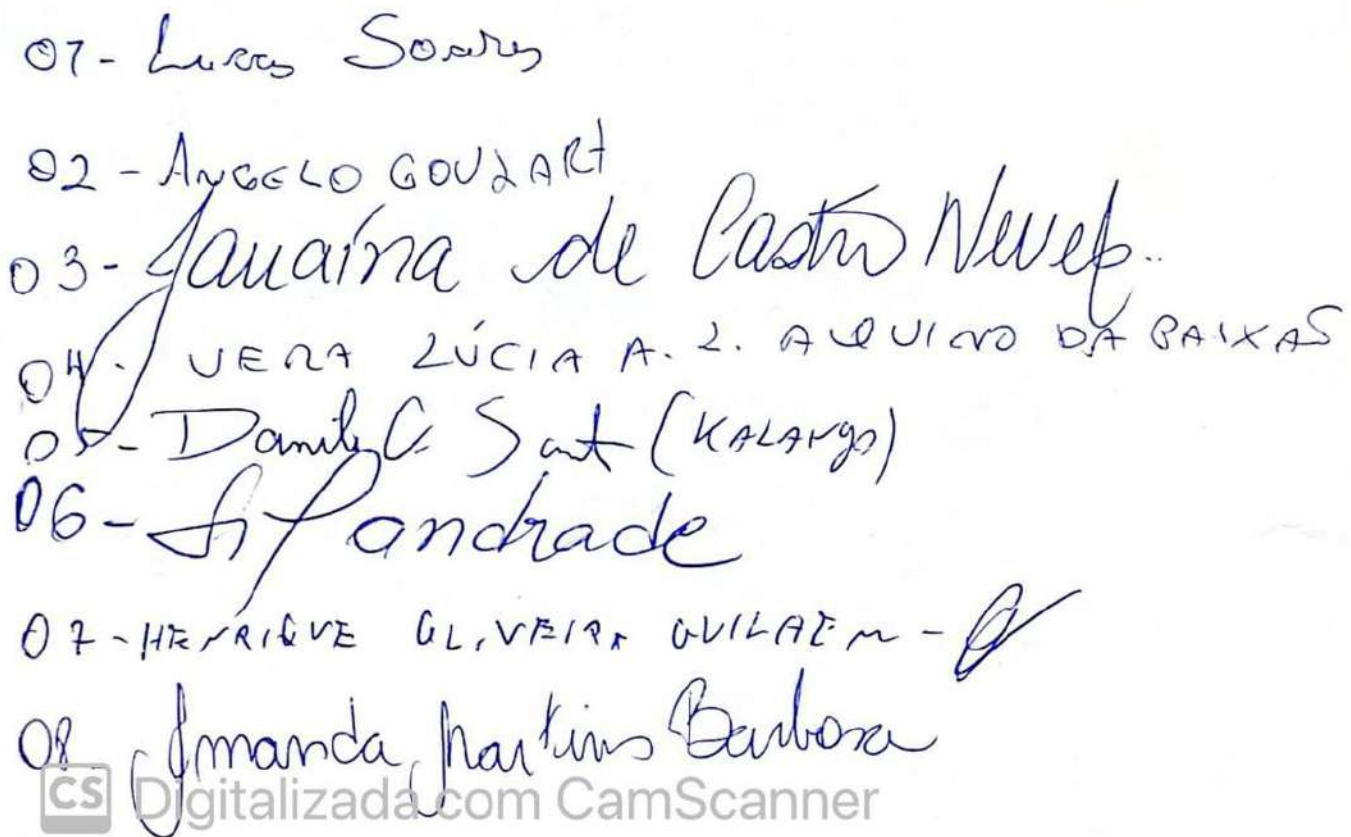 01- Lucas Soares
02 - ANGELO GOULART
03- Janaína de Castro Neves.
04. VERA LÚCIA A. L. AQUINO DA PAIXÃO
05- Danilo C. Sant (KALANgO)
06- andrade
07-HENRIQUE OLIVEIRA
08- Amanda Martins Barbosa
CS Digitalizada com CamScanner